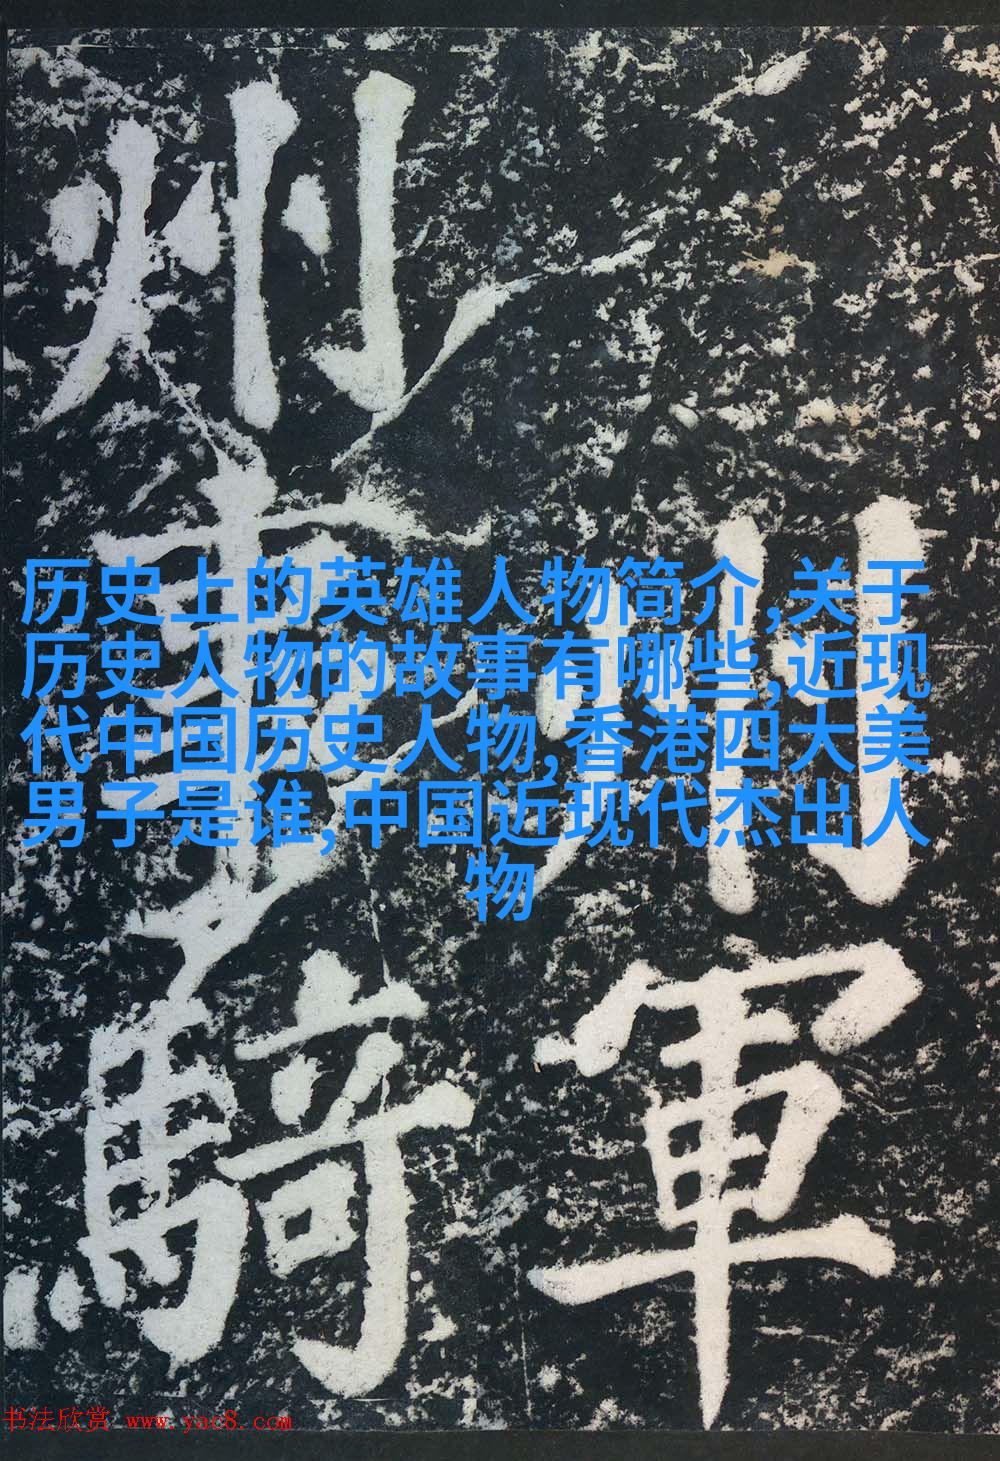 川軍
州事騎
历史上的英雄人物简介,关于
历史人物的故事有哪些,近现
代中国历史人物,香港四大美
男子是谁,中国近现代杰出人
物
书法欣赏 www.yac8.com